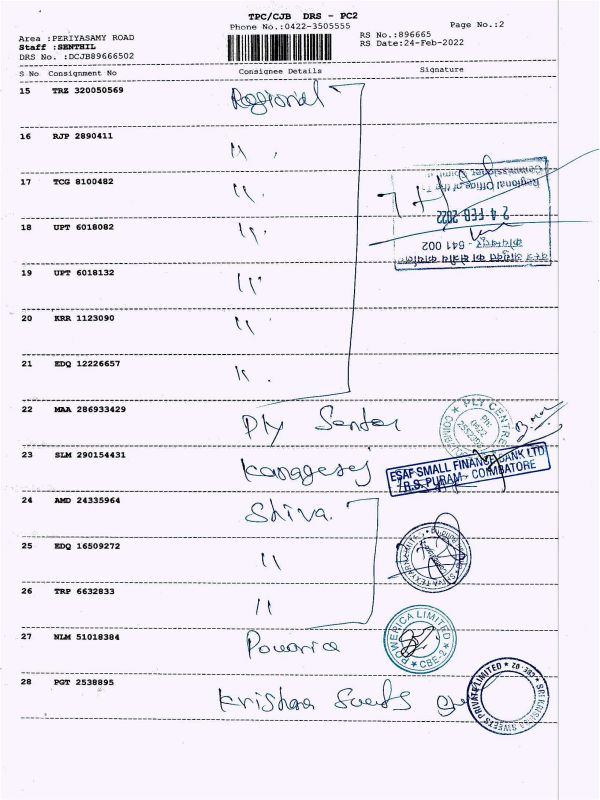 TPC/CJB DRS - PC2
Phone No.:0422-3505555
Page No.:2
Area :PERIYASAMY ROAD
Staff :SENTHIL
DRS No. :DCJB89666502
RS No.:896665
RS Date:24-Feb-2022
S No Consignment No Consignee Details Signature
15 TRZ 320050569 Regional
16 RJP 2890411 "
17 TCG 8100482 "
18 UPT 6018082 "
19 UPT 6018132 "
20 KRR 1123090 "
21 EDQ 12226657 "
Regional Office of the
24 FEB 2022
641 002
22 MAA 286933429 Ply Senter
PLY CENTRE
23 SLM 290154431
ESAF SMALL FINANCE BANK LTD
R.S. PURAM - COIMBATORE
24 AMD 24335964 Shiva
25 EDQ 16509272 "
26 TRP 6632833 "
27 NLM 51018384 Powerica
POWERICA LIMITED
CBE-2
28 PGT 2538895 Krishna Sweets
SRI KRISHNA SWEETS PRIVATE LIMITED
CBE-02